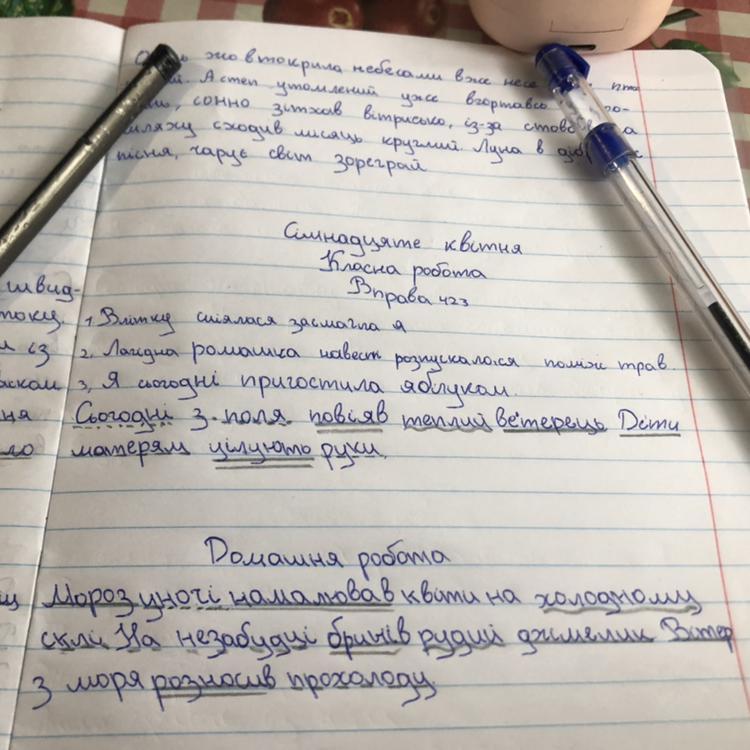 жовтокрила небесами вже несе
А степ утомлений уже вгортавсо
сонно зітхав вітрисько, із-за
сходив місяць круглий. Луна в
пісня, чарує світ зореграй
Сімнадцяте квітня
Класна робота
Вправа 423
швид-
1. Влітку сміялася засмагла я
току.
2. Лагідна ромашка навесні розпускалася поміж трав.
із
3. Я сьогодні пригостила яблуком.
ня
Сьогодні з поля повіяв теплий вєтерець Діти
ло
матерям цілують руки.
Домашня робота
Мороз уночі намалював квіти на холодному
склі. На незабудці бринів рудий джмелик Вітер
з моря розносив прохолоду.